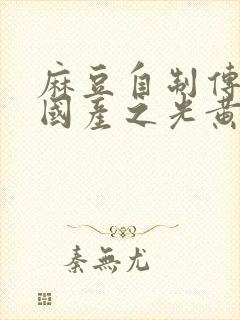 麻豆自制傳
國產之光黃
秦無尤